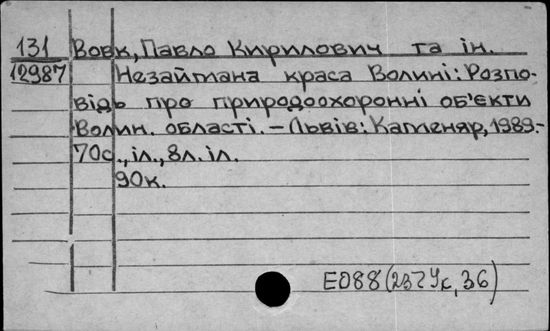 131 Вовк, Павло Кирилович та ін.
12987 Незаймана краса Волині: Розпо-
відь про природоохоронні об'єкти
Волин. області. – Львів: Каменяр, 1989.-
70с., іл., 8л. іл.
90к.
Е088(2З7Ук, 36)